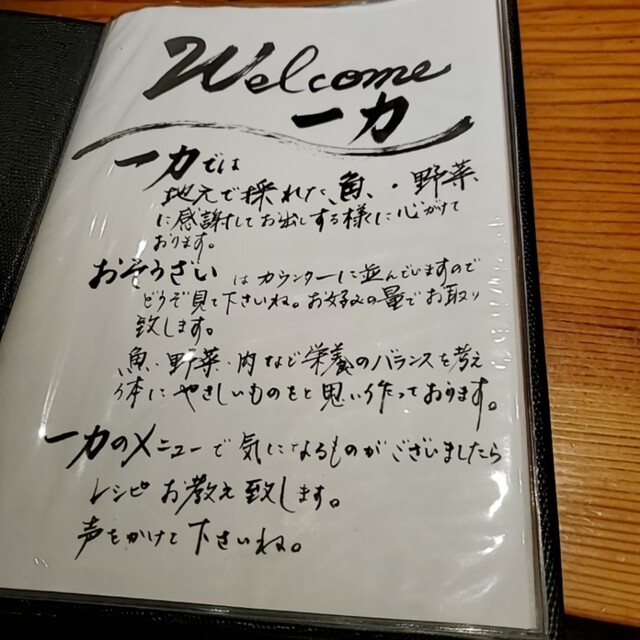 Welcome
一力
一力では
地元で採れた、魚、・野菜
に感謝してお出しする様に心がけて
おります。
おそうざい はカウンターに並んでいますので
どうぞ見て下さいね。お好みの量でお取り
致します。
魚・野菜・肉など栄養のバランスを考え
体にやさしいものをと思い作っております。
一力のメニューで気になるものがございましたら
レシピお教え致します。
声をかけて下さいね。